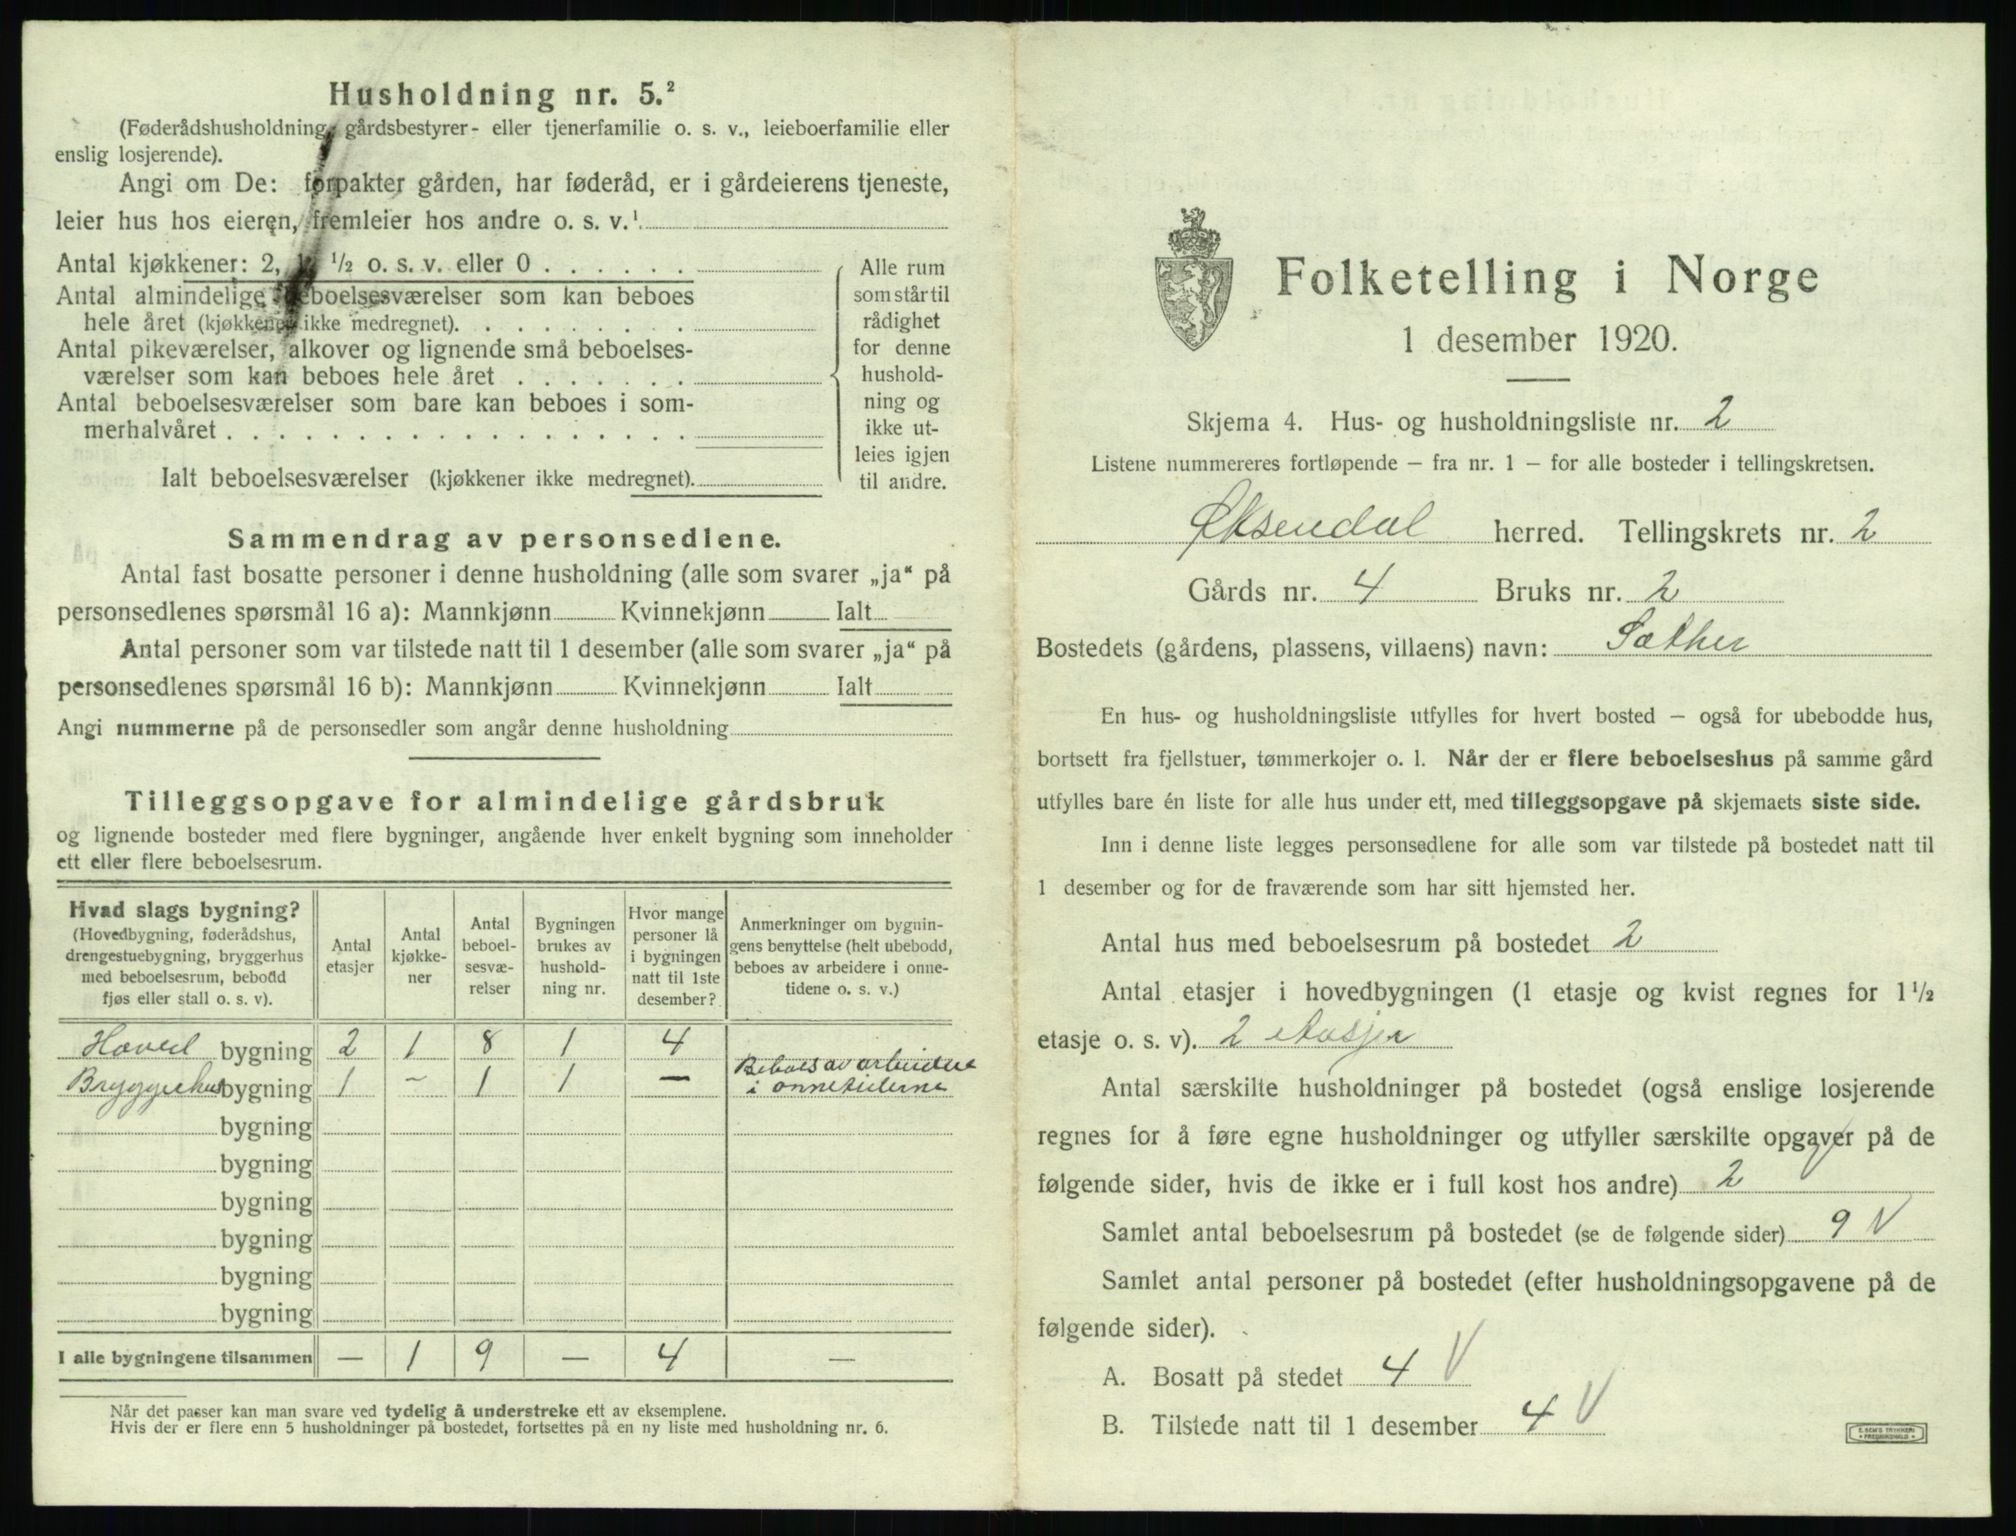 Husholdning nr. 5.²
(Føderådshusholdning, gårdsbestyrer- eller tjenerfamilie o. s. v., leieboerfamilie eller
enslig losjerende).
Angi om De: forpakter gården, har føderåd, er i gårdeierens tjeneste,
leier hus hos eieren, fremleier hos andre o. s. v.¹
Antal kjøkkener: 2, 1 ½ o. s. v. eller 0
Antal almindelige beboelsesværelser som kan beboes
hele året (kjøkkener ikke medregnet).
Antal pikeværelser, alkover og lignende små beboelses-
værelser som kan beboes hele året
Antal beboelsesværelser som bare kan beboes i som-
merhalvåret
Ialt beboelsesværelser (kjøkkener ikke medregnet).
Alle rum
som står til
rådighet
for denne
hushold-
ning og
ikke ut-
leies igjen
til andre.
Sammendrag av personsedlene.
Antal fast bosatte personer i denne husholdning (alle som svarer „ja“ på
personsedlenes spørsmål 16 a): Mannkjønn Kvinnekjønn Ialt
Antal personer som var tilstede natt til 1 desember (alle som svarer „ja“ på
personsedlenes spørsmål 16 b): Mannkjønn Kvinnekjønn Ialt
Angi nummerne på de personsedler som angår denne husholdning
Tilleggsopgave for almindelige gårdsbruk
og lignende bosteder med flere bygninger, angående hver enkelt bygning som inneholder
ett eller flere beboelsesrum.
Hvad slags bygning?
(Hovedbygning, føderådshus,
drengestuebygning, bryggerhus
med beboelsesrum, bebodd
fjøs eller stall o. s. v).
Antal
etasjer
Antal
kjøkke-
ner
Antal
beboel-
sesvæ-
relser
Bygningen
brukes av
hushold-
ning nr.
Hvor mange
personer lå
i bygningen
natt til 1ste
desember?
Anmerkninger om bygnin-
gens benyttelse (helt ubebodd,
beboes av arbeidere i onne-
tidene o. s. v.)
Hoved bygning 2 1 8 1 4
Bryggerhus bygning 1 - 1 1 — Beboes av arbeidere
i onnetiderne
bygning
bygning
bygning
bygning
bygning
bygning
I alle bygningene tilsammen — 1 9 — 4 —
Når det passer kan man svare ved tydelig å understreke ett av eksemplene.
Hvis der er flere enn 5 husholdninger på bostedet, fortsettes på en ny liste med husholdning nr. 6.
Folketelling i Norge
1 desember 1920.
Skjema 4. Hus- og husholdningsliste nr. 2
Listene nummereres fortløpende – fra nr. 1 – for alle bosteder i tellingskretsen.
Øksendal herred. Tellingskrets nr. 2
Gårds nr. 4 Bruks nr. 2
Bostedets (gårdens, plassens, villaens) navn: Sæther
En hus- og husholdningsliste utfylles for hvert bosted – også for ubebodde hus,
bortsett fra fjellstuer, tømmerkojer o. l. Når der er flere beboelseshus på samme gård
utfylles bare én liste for alle hus under ett, med tilleggsopgave på skjemaets siste side.
Inn i denne liste legges personsedlene for alle som var tilstede på bostedet natt til
1 desember og for de fraværende som har sitt hjemsted her.
Antal hus med beboelsesrum på bostedet 2
Antal etasjer i hovedbygningen (1 etasje og kvist regnes for 1½
etasje o. s. v). 2 etasjer
Antal særskilte husholdninger på bostedet (også enslige losjerende
regnes for å føre egne husholdninger og utfyller særskilte opgaver på de
følgende sider, hvis de ikke er i full kost hos andre) 2
Samlet antal beboelsesrum på bostedet (se de følgende sider) 9 V
Samlet antal personer på bostedet (efter husholdningsopgavene på de
følgende sider).
A. Bosatt på stedet 4 V
B. Tilstede natt til 1 desember 4 V
E. SEM'S TRYKKERI
FREDRIKSHALD